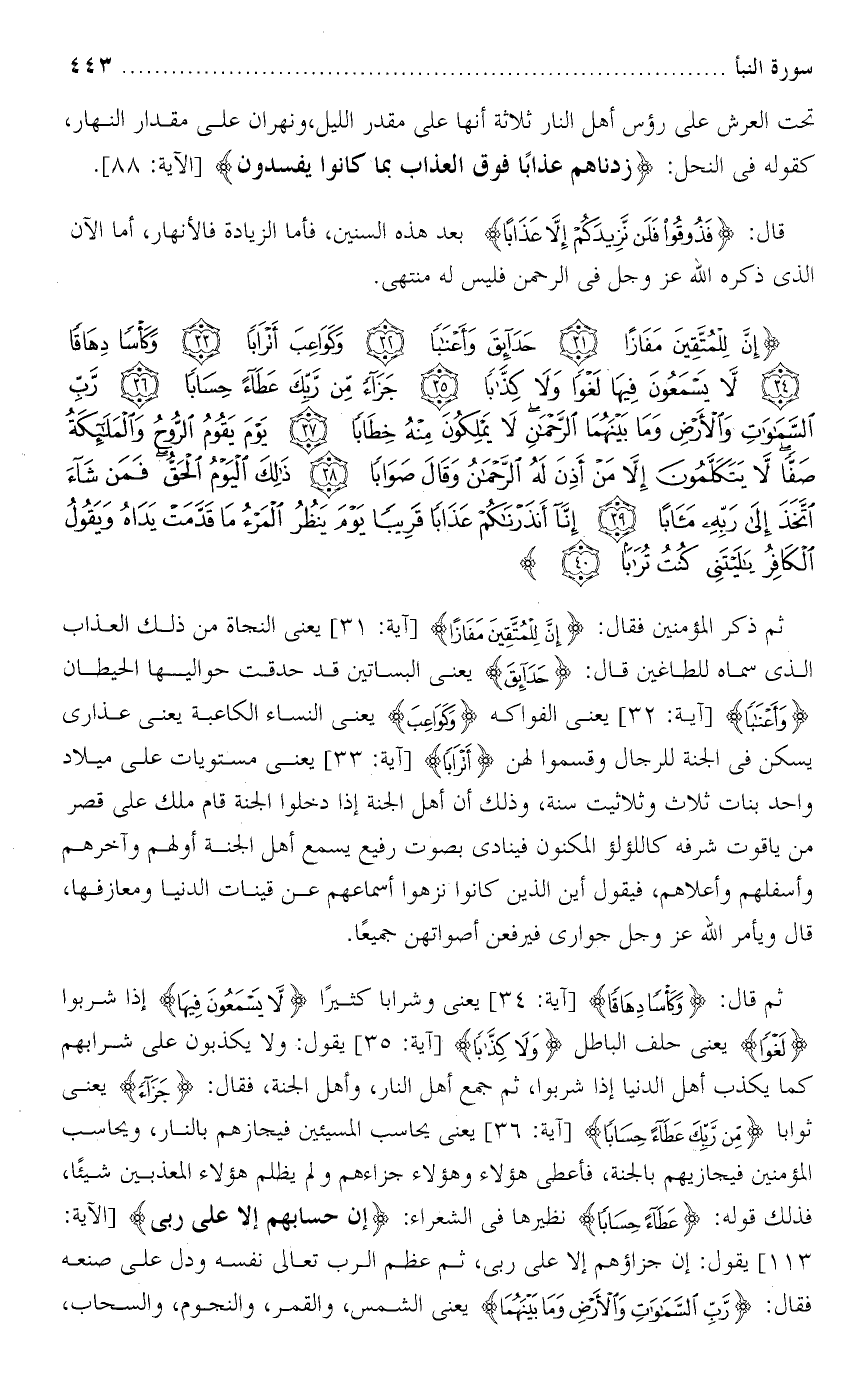 سورة النبأ ........................................................................... ٤٤٣
تحت العرش على رؤس أهل النار ثلاثة أنها على مقدر الليل،ونهران على مقدار النهار،
كقوله فى النحل: ﴿زدناهم عذابًا فوق العذاب بما كانوا يفسدون﴾ [الآية: ٨٨].
قال: ﴿فَذُوقُوا۟ فَلَن نَّزِيدَكُمْ إِلَّا عَذَابًا﴾ بعد هذه السنين، فأما الزيادة فالأنهار، أما الآن
الذى ذكره الله عز وجل فى الرحمن فليس له منتهى.
﴿إِنَّ لِلْمُتَّقِينَ مَفَازًا ٣١ حَدَآئِقَ وَأَعْنَٰبًا ٣٢ وَكَوَاعِبَ أَتْرَابًا ٣٣ وَكَأْسًا دِهَاقًا
٣٤ لَّا يَسْمَعُونَ فِيهَا لَغْوًا وَلَا كِذَّٰبًا ٣٥ جَزَآءً مِّن رَّبِّكَ عَطَآءً حِسَابًا ٣٦ رَّبِّ
ٱلسَّمَٰوَٰتِ وَٱلْأَرْضِ وَمَا بَيْنَهُمَا ٱلرَّحْمَٰنِۖ لَا يَمْلِكُونَ مِنْهُ خِطَابًا ٣٧ يَوْمَ يَقُومُ ٱلرُّوحُ وَٱلْمَلَٰٓئِكَةُ
صَفًّاۖ لَّا يَتَكَلَّمُونَ إِلَّا مَنْ أَذِنَ لَهُ ٱلرَّحْمَٰنُ وَقَالَ صَوَابًا ٣٨ ذَٰلِكَ ٱلْيَوْمُ ٱلْحَقُّۖ فَمَن شَآءَ
ٱتَّخَذَ إِلَىٰ رَبِّهِۦ مَـَٔابًا ٣٩ إِنَّآ أَنذَرْنَٰكُمْ عَذَابًا قَرِيبًا يَوْمَ يَنظُرُ ٱلْمَرْءُ مَا قَدَّمَتْ يَدَاهُ وَيَقُولُ
ٱلْكَافِرُ يَٰلَيْتَنِى كُنتُ تُرَٰبًۢا ٤٠ ﴾
ثم ذكر المؤمنين فقال: ﴿إِنَّ لِلْمُتَّقِينَ مَفَازًا﴾ [آية: ٣١] يعنى النجاة من ذلك العذاب
الذى سماه للطاغين قال: ﴿حَدَآئِقَ﴾ يعنى البساتين قد حدقت حواليها الحيطان
﴿وَأَعْنَٰبًا﴾ [آية: ٣٢] يعنى الفواكه ﴿وَكَوَاعِبَ﴾ يعنى النساء الكاعبة يعنى عذارى
يسكن فى الجنة للرجال وقسموا لهن ﴿أَتْرَابًا﴾ [آية: ٣٣] يعنى مستويات على ميلاد
واحد بنات ثلاث وثلاثيت سنة، وذلك أن أهل الجنة إذا دخلوا الجنة قام ملك على قصر
من ياقوت شرفه كاللؤلؤ المكنون فينادى بصوت رفيع يسمع أهل الجنة أولهم وآخرهم
وأسفلهم وأعلاهم، فيقول أين الذين كانوا نزهوا أسماعهم عن قينات الدنيا ومعازفها،
قال ويأمر الله عز وجل جوارى فيرفعن أصواتهن جميعًا.
ثم قال: ﴿وَكَأْسًا دِهَاقًا﴾ [آية: ٣٤] يعنى وشرابا كثيرًا ﴿لَّا يَسْمَعُونَ فِيهَا﴾ إذا شربوا
﴿لَغْوًا﴾ يعنى حلف الباطل ﴿وَلَا كِذَّٰبًا﴾ [آية: ٣٥] يقول: ولا يكذبون على شرابهم
كما يكذب أهل الدنيا إذا شربوا، ثم جمع أهل النار، وأهل الجنة، فقال: ﴿جَزَآءً﴾ يعنى
ثوابا ﴿مِّن رَّبِّكَ عَطَآءً حِسَابًا﴾ [آية: ٣٦] يعنى يحاسب المسيئين فيجازهم بالنار، ويحاسب
المؤمنين فيجازيهم بالجنة، فأعطى هؤلاء وهؤلاء جزاءهم ولم يظلم هؤلاء المعذبين شيئًا،
فذلك قوله: ﴿عَطَآءً حِسَابًا﴾ نظيرها فى الشعراء: ﴿إن حسابهم إلا على ربى﴾ [الآية:
١١٣] يقول: إن جزاؤهم إلا على ربى، ثم عظم الرب تعالى نفسه ودل على صنعه
فقال: ﴿رَّبِّ ٱلسَّمَٰوَٰتِ وَٱلْأَرْضِ وَمَا بَيْنَهُمَا﴾ يعنى الشمس، والقمر، والنجوم، والسحاب،